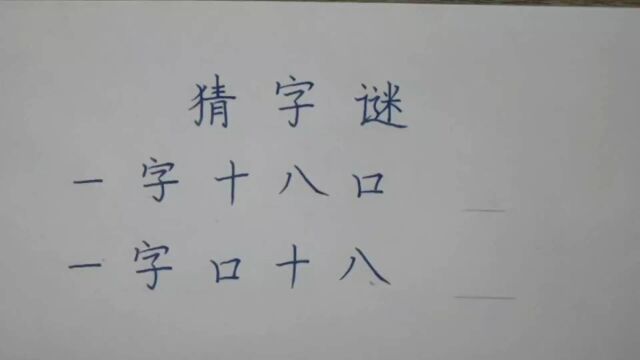 猜字谜
一字十八口
一字口十八